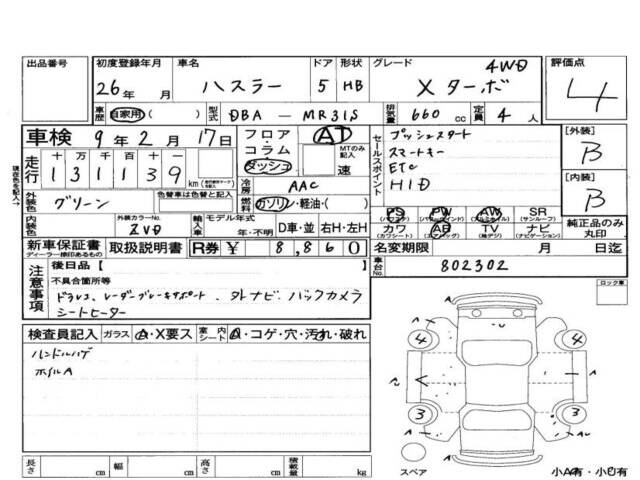 出品番号 初度登録年月 車名 ドア 形状 グレード 4WD 評価点
26年 月 ハスラー 5 HB Xターボ 4
車歴 自家用( ) 型式 DBA - MR31S 排気量 660 cc 定員 4 人
車検 9年 2月 17日 フロア・コラム ダッシュ AT MTのみ記入 速
セールスポイント プッシュスタート
スマートキー
ETC
HID
[外装] B
[内装] B
現在色を記入→
走行 十 万 千 百 十 一
131139 km
冷房 AAC
外装色 グリーン 色替車は色替と記入 燃料 ガソリン・軽油・( )
PS (パワステ) PW (パワーウィンド) AW (アルミホイル) SR (サンルーフ)
カワ (カワシート) AB (エアバッグ) TV (地デジ) ナビ (ナビゲーション)
純正品のみ丸印
内装色 外装カラーNo. ZVD 輸入車 モデル年式 年・不明 D車・並 右H・左H
新車保証書 ディーラー捺印あるもの 取扱説明書 R券 ¥ 8,860
名変期限 月 日迄
注意事項 後日品【 】
車台No. 802302
不具合箇所等
ドラレコ、レーダーブレーキサポート、外ナビ、バックカメラ
シートヒーター
ロック車
検査員記入 ガラス A・X要ス 室内シート Q・コゲ・穴・汚れ・破れ
ハンドルハゲ
ホイルA
4 4
3 3
A
スペア
小A有・小U有
長さ cm 幅 cm 高さ cm 積載量 kg